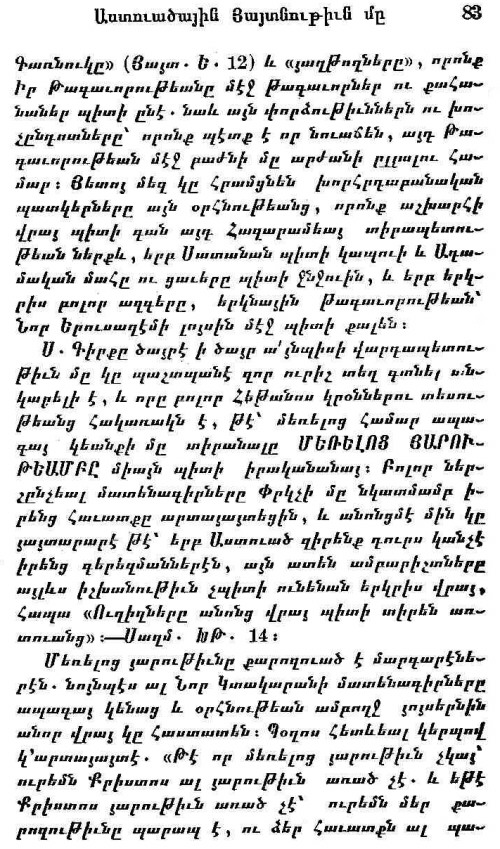 Աստուածային Յայտնութիւն մը 83
Գառնուկը» (Յայտ. Ե. 12) և «յաղթողները», որոնք
Իր Թագաւորութեանը մէջ Թագաւորներ ու քահա-
նաներ պիտի ընէ. նաև այն փորձութիւններն ու խո-
չընդոտները՝ որոնք պէտք է որ նուաճեն, այդ Թա-
գաւորութեան մէջ բաժնի մը արժանի ըլլալու հա-
մար։ Յետոյ մեզ կը հրամցնեն խորհրդաբանական
պատկերները այն օրհնութեանց, որոնք աշխարհի
վրայ պիտի գան այդ Հազարամեայ տիրապետու-
թեան ներքև, երբ Սատանան պիտի կապուի և Ադա-
մական մահը ու ցաւերը պիտի ջնջուին, և երբ երկ-
րիս բոլոր ազգերը, երկնային Թագաւորութեան՝
Նոր Երուսաղէմի լոյսին մէջ պիտի քալեն։
Ս. Գիրքը ծայրէ ի ծայր ա՛յնպիսի վարդապետու-
թիւն մը կը պաշտպանէ զոր ուրիշ տեղ գտնել ան-
կարելի է, և որը բոլոր Հեթանոս կրօններու տեսու-
թեանց հակառակն է, թէ՝ մեռելոց համար ապա-
գայ կեանքի մը տիրանալը ՄԵՌԵԼՈՑ ՅԱՐՈՒ-
ԹԵԱՄԲԸ միայն պիտի իրականանայ։ Բոլոր ներ-
շընչեալ մատենագիրները Փրկչի մը նկատմամբ ի-
րենց հաւատքը արտայայտեցին, և անոնցմէ մին կը
յայտարարէ թէ՝ երբ Աստուած զիրենք դուրս կանչէ
իրենց գերեզմաններէն, այն ատեն ամբարիշտները
այլևս իշխանութիւն չպիտի ունենան երկրիս վրայ,
հապա «Ուղիղները անոնց վրայ պիտի տիրեն առ-
տուանց»։—Սաղմ. ԽԹ. 14։
Մեռելոց յարութիւնը քարոզուած է մարգարէնե-
րէն. նոյնպէս ալ Նոր Կտակարանի մատենագիրները
ապագայ կենաց և օրհնութեան ամբողջ յոյսերնին
անոր վրայ կը հաստատեն։ Պօղոս հետևեալ կերպով
կ՚արտայայտէ. «Թէ որ մեռելոց յարութիւն չկայ՝
ուրեմն Քրիստոս ալ յարութիւն առած չէ. և եթէ
Քրիստոս յարութիւն առած չէ՝ ուրեմն մեր քա-
րոզութիւնը պարապ է, ու ձեր հաւատքն ալ պա-